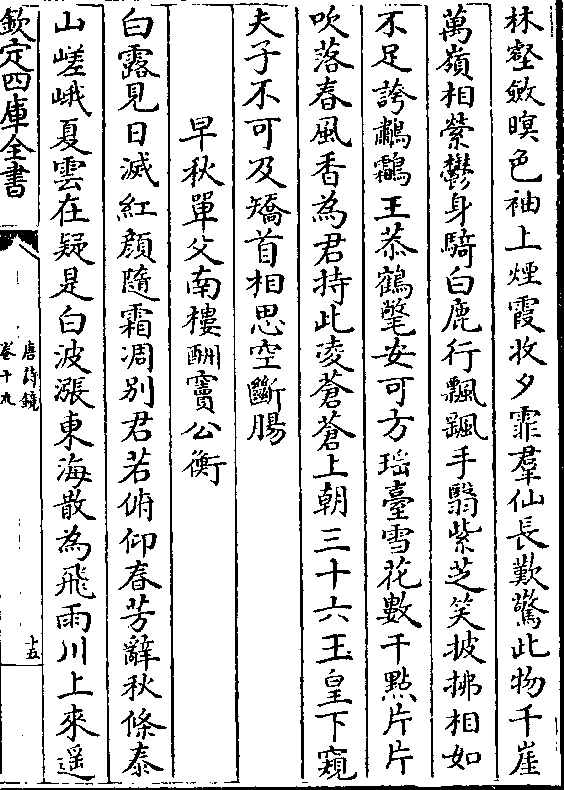 林壑斂暝色袖上煙霞收夕霏羣仙長歎驚此物千崖
萬嶺相縈鬱身騎白鹿行飄颻手翳紫芝笑披拂相如
不足誇鷫鸘王恭鶴氅安可方瑶臺雪花數千點片片
吹落春風香為君持此凌蒼蒼上朝三十六玉皇下窺
夫子不可及矯首相思空斷腸
早秋單父南樓酬竇公衡
白露見日滅紅顔隨霜凋别君若俯仰春芳辭秋條泰
山嵯峨夏雲在疑是白波漲東海散為飛雨川上來遥
欽定四庫全書
唐詩鏡
卷十九
十五